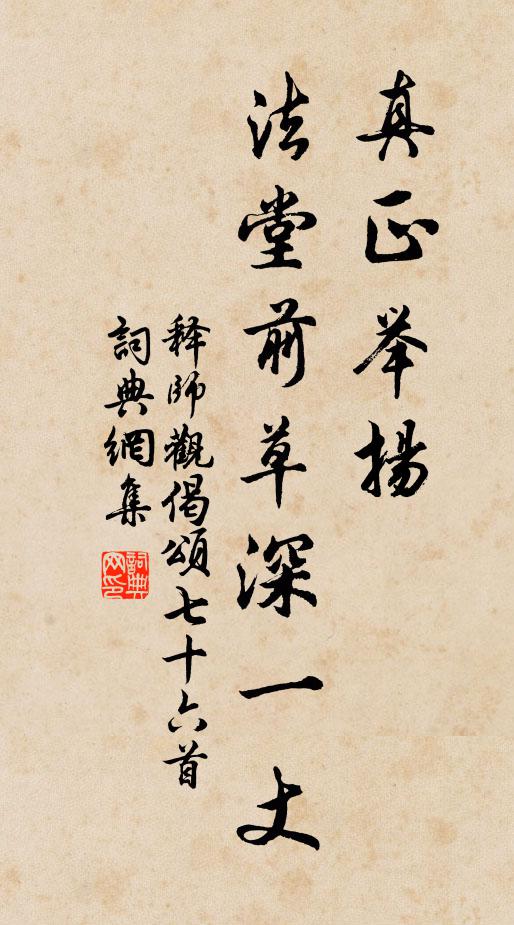 真正举揚
法堂前草深一丈
释師觀偈頌七十六首
詞典網集
詞典网印